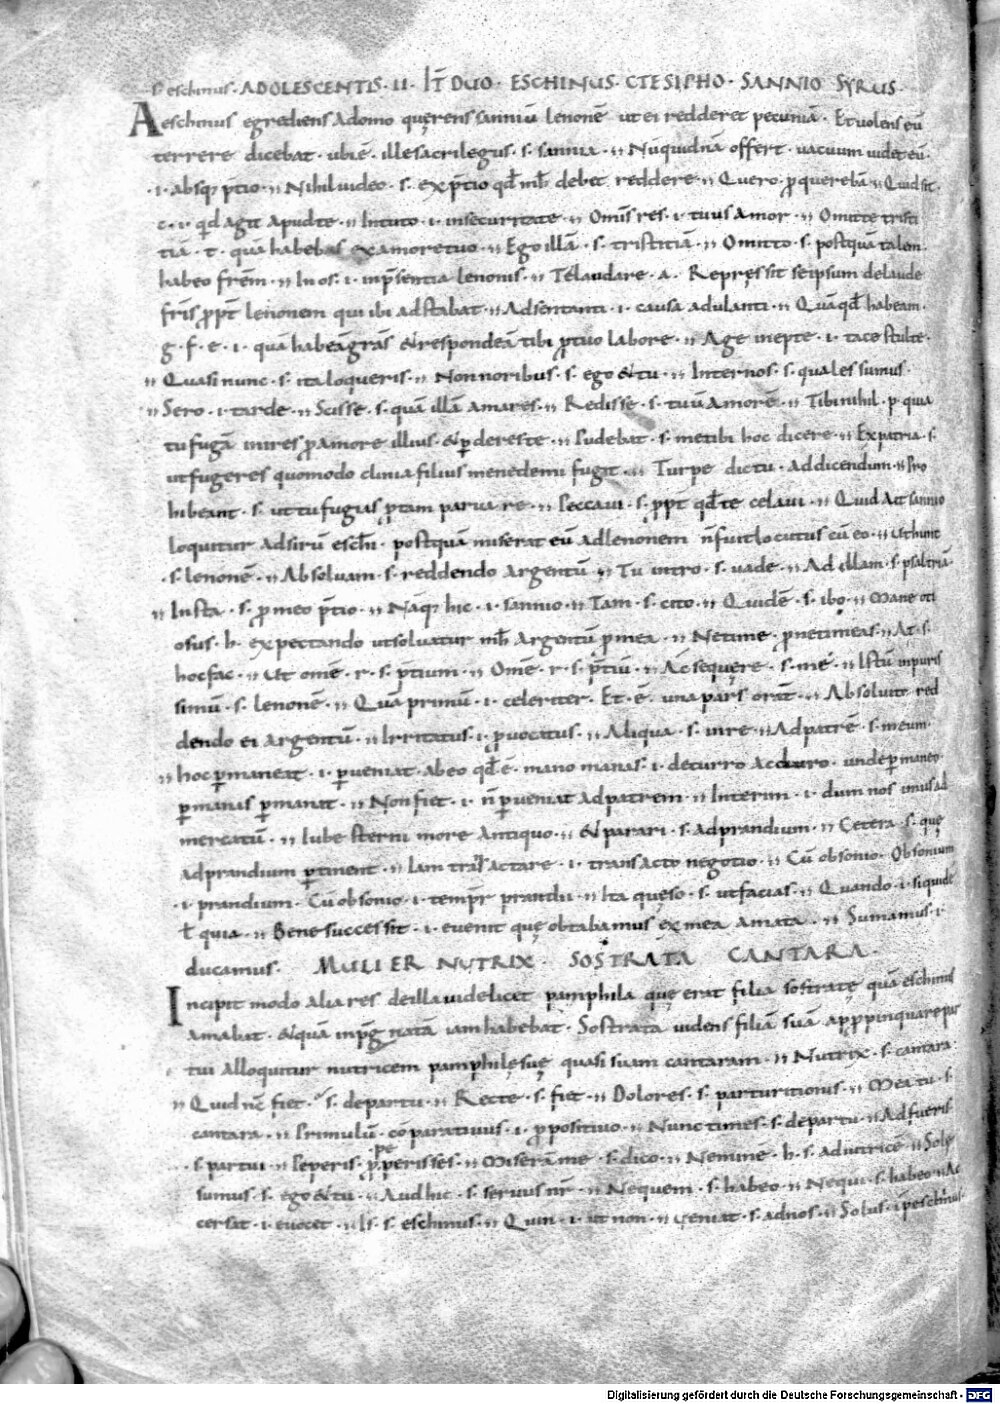 eschinus · ADOLESCENTIS · II · IT DUO · ESCHINUS · CTESIPHO · SANNIO SYRUS ·
Aeschinus egrediens adomo querens sanniū lenonē ut ei redderet pecuniā · Et volens eū
terrere dicebat · ubi ē · ille sacrilegus · s · sannia · Nūquid nā offert · vacuum videt eū ·
· i · absq; p̄tio · Nihil video · s · ex p̄tio qđ mħ debet reddere · Quero · p querebā · Quid sit
c · i · qđ agit apud te · In tuto · i · in securitate · Omīs res · i · tuus amor · Omitte tristi
tiā · t · quā habebas ex amore tuo · Ego illā · s · tristitiā · Omitto · s · postquā talem
habeo frēm · In os · i · in p̄sentia lenonis · Te laudare · a · Repressit se ipsum de laude
frīs ppt lenonem qui ibi adstabat · Adsentanti · i · causa adulanti · Quā qđ habeam ·
g · f · e · i · quā habeā grās & respondeā tibi p tuo labore · Age inepte · i · tace stulte ·
Quasi nunc · s · ita loqueris · Non noribus · s · ego & tu · Inter nos · s · quales sumus ·
Sero · i · tarde · Scisse · s · quā illā amares · Redisse · s · tuū amorē · Tibi nihil · p · quia
tu fugā inires p amore illius · & pderes te · Pudebat · s · me tibi hoc dicere · Ex patria · s ·
ut fugeres quomodo clinia filius menedemi fugit · Turpe dictu · ad dicendum · Pro
hibeant · s · ut tu fugias p tam parva re · Peccavi · s · ppt qđ te celavi · Quid ait sannio
loquitur ad sirū eschi · postquā miserat eū ad lenonem n̄ fuit locutus cū eo · Ut hunc
· s · lenonē · Absolvam · s · reddendo argentū · Tu intro · s · vade · Ad illam · s · psaltriā
Insta · s · p meo p̄tio · Nāq; hic · i · sannio · Tam · s · cito · Quidē · s · ibo · Mane oti
osus · h · expectando ut solvatur mħ argentū p mea · Ne time · p ne timeas · At · s ·
hoc fac · Ut omē · r · s · p̄tium · Omē · r · s · p̄tiū · Ac sequere · s · me · Istū inpuris
simū · s · lenonē · Quā primū · i · celeriter · Et · ē · una pars orāt · Absolvite red
dendo ei argentū · Irritatus · i · pvocatus · Aliqua · s · in re · Ad patrē · s · meum ·
hoc pmaneat · i · pveniat · ab eo qđ ē · mano manas · i · decurro ac duro · unde pmaneo
pmanas pmanat · Non fiet · i · n̄ pveniat ad patrem · Interim · i · dum nos imus ad
mercatū · Iube sterni more antiquo · & parari · s · ad prandium · Cetera · s · que
ad prandium ptinent · Iam trās actare · i · transacto negotio · Cū obsonio · Obsonium
· i · prandium · Cū obsonio · i · tempr prandii · Ita queso · s · ut facias · Quando · i · siquidē
t quia · Bene successit · i · evenit que obtabamus ex mea amata · Sumamus · i ·
ducamus · MULIER NUTRIX · SOSTRATA CANTARA ·
Incipit modo alia res de illa videlicet pamphila que erat filia sostrate quā eschinus
amabat · & quā inp̄gnatā iam habebat · Sostrata videns filiā suā appropinquare par
tui alloquitur nutricem pamphile sue quasi suam cantaram · Nutrix · s · cantara
Quid nc̄ fiet · s · de partu · Recte · s · fiet · Dolores · s · parturitionis · Mea tu · s ·
cantara · Primulū · cōparativus · i · ppositivo · Nunc times · s · de partu · Adfueris
· s · partui · Peperis · p pe perisses · Miserā me · s · dico · Neminē · h · s · adiutricē · Sole
sumus · s · ego & tu · Aud hic · s · servus nr̄ · Nequem · s · habeo · Nequi · s · habeo · Ac
cersit · i · evocet · Is · s · eschinus · Quin · i · ut non · Veniat · s · ad nos · Solus · i pe eschinus
Digitalisierung gefördert durch die Deutsche Forschungsgemeinschaft - DFG